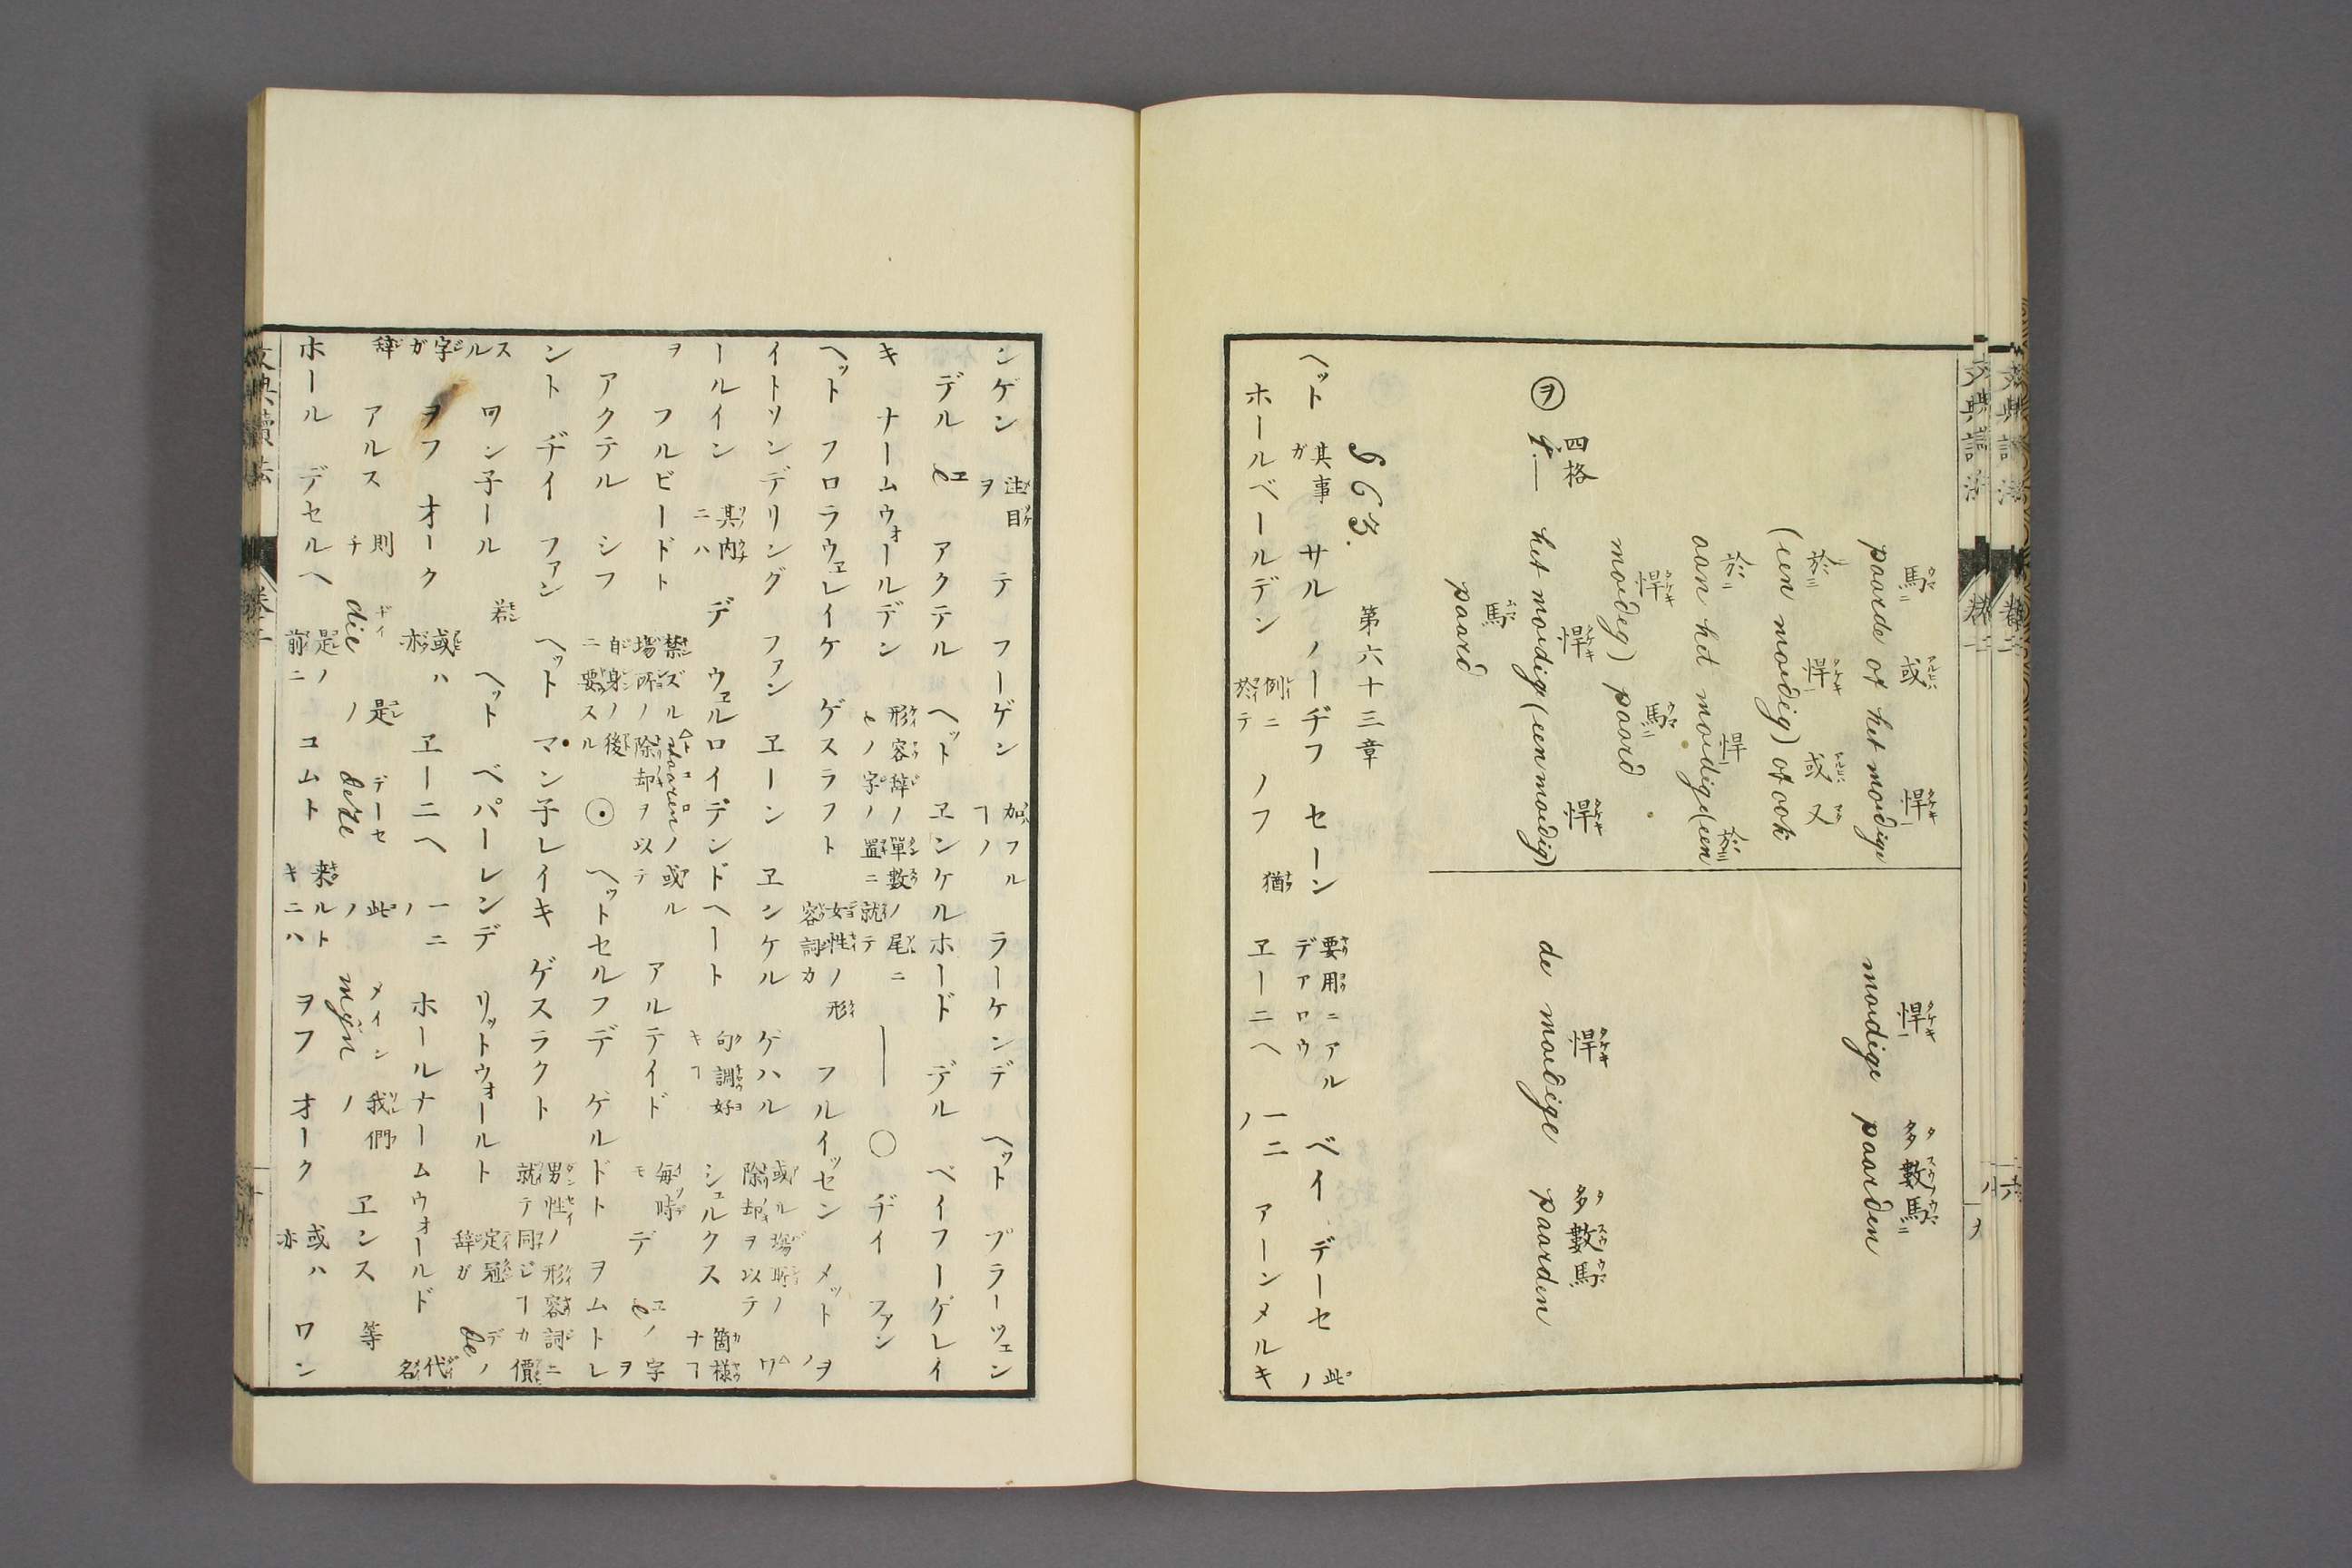 文典讀法 卷二
馬ニ 或 悍キ
paarde of het moedige
於ニ 悍キ 或 又
(een moedig) of ook
於ニ 悍 於ニ
aan het moedige (een
悍キ 馬ニ
moedig) paard
四格 悍キ 悍キ
ヲ 4.— het moedig (een moedig)
馬
paard
悍キ 多數馬ニ
moedige paarden
悍キ 多數馬
de moedige paarden
§ 63. 第六十三章
ヘット 其事ガ サル ノーヂフ セーン 要用ニアルデアロウ ベイ デーセ 此ノ
ホールベールデン 例ニ於テ ノフ 猶 ヱーニヘ 一二ノ アーンメルキ
ンゲン 注目ヲ テ フーゲン 加フルヿノ ラーケンデ ヘット ブラーツェン
デル e アクテル ヘット ヱンケルホード デル ベイフーゲレイ
キ ナームウォールデン 形容辞ノ單數ノ尾ニeノ字ノ置ニ就テ ― ○ ヂイ ファン
ヘット フロラウェレイケ ゲスラフト 女性ノ形容詞カ フルイッセン メット ヲ
イトソンデリング ファン ヱーン ヱンケル ゲハル 或ル塲所ノ除却ヲ以テ ワ
ールイン 其内ニハ デ ウェルロイデンドヘート 句調好キヿ シュルクス 箇様ナヿ
ヲ フルビードト 禁ズル 塲所ノ除却ヲ以テ 或ル アルテイド 毎時モ デ eノ字ヲ
アクテル シフ 自身ノ後ニ要スル ⊙ ヘットセルフデ ゲルドト ヲムトレ
ント ヂイ ファン ヘット マン子レイキ ゲスラクト 男性ノ形容詞ニ就テ同ジヿカ價
スル ワン子ール 若 ヘット ベパーレンデ リットウォールト 定冠辞ガ deノ
字ガ ヲフ オーク 或ハ亦 ヱーニヘ 一二ノ ホールナームウォールド 代名
辞 アルス 則チ die 是ノ deze 此ノ mijn 我們ノ ヱンス 等
ホール デセルヘ 是ノ前ニ コムト 来ルトキニハ ヲフ オーク 或ハ亦 ワン
文典讀法 卷二